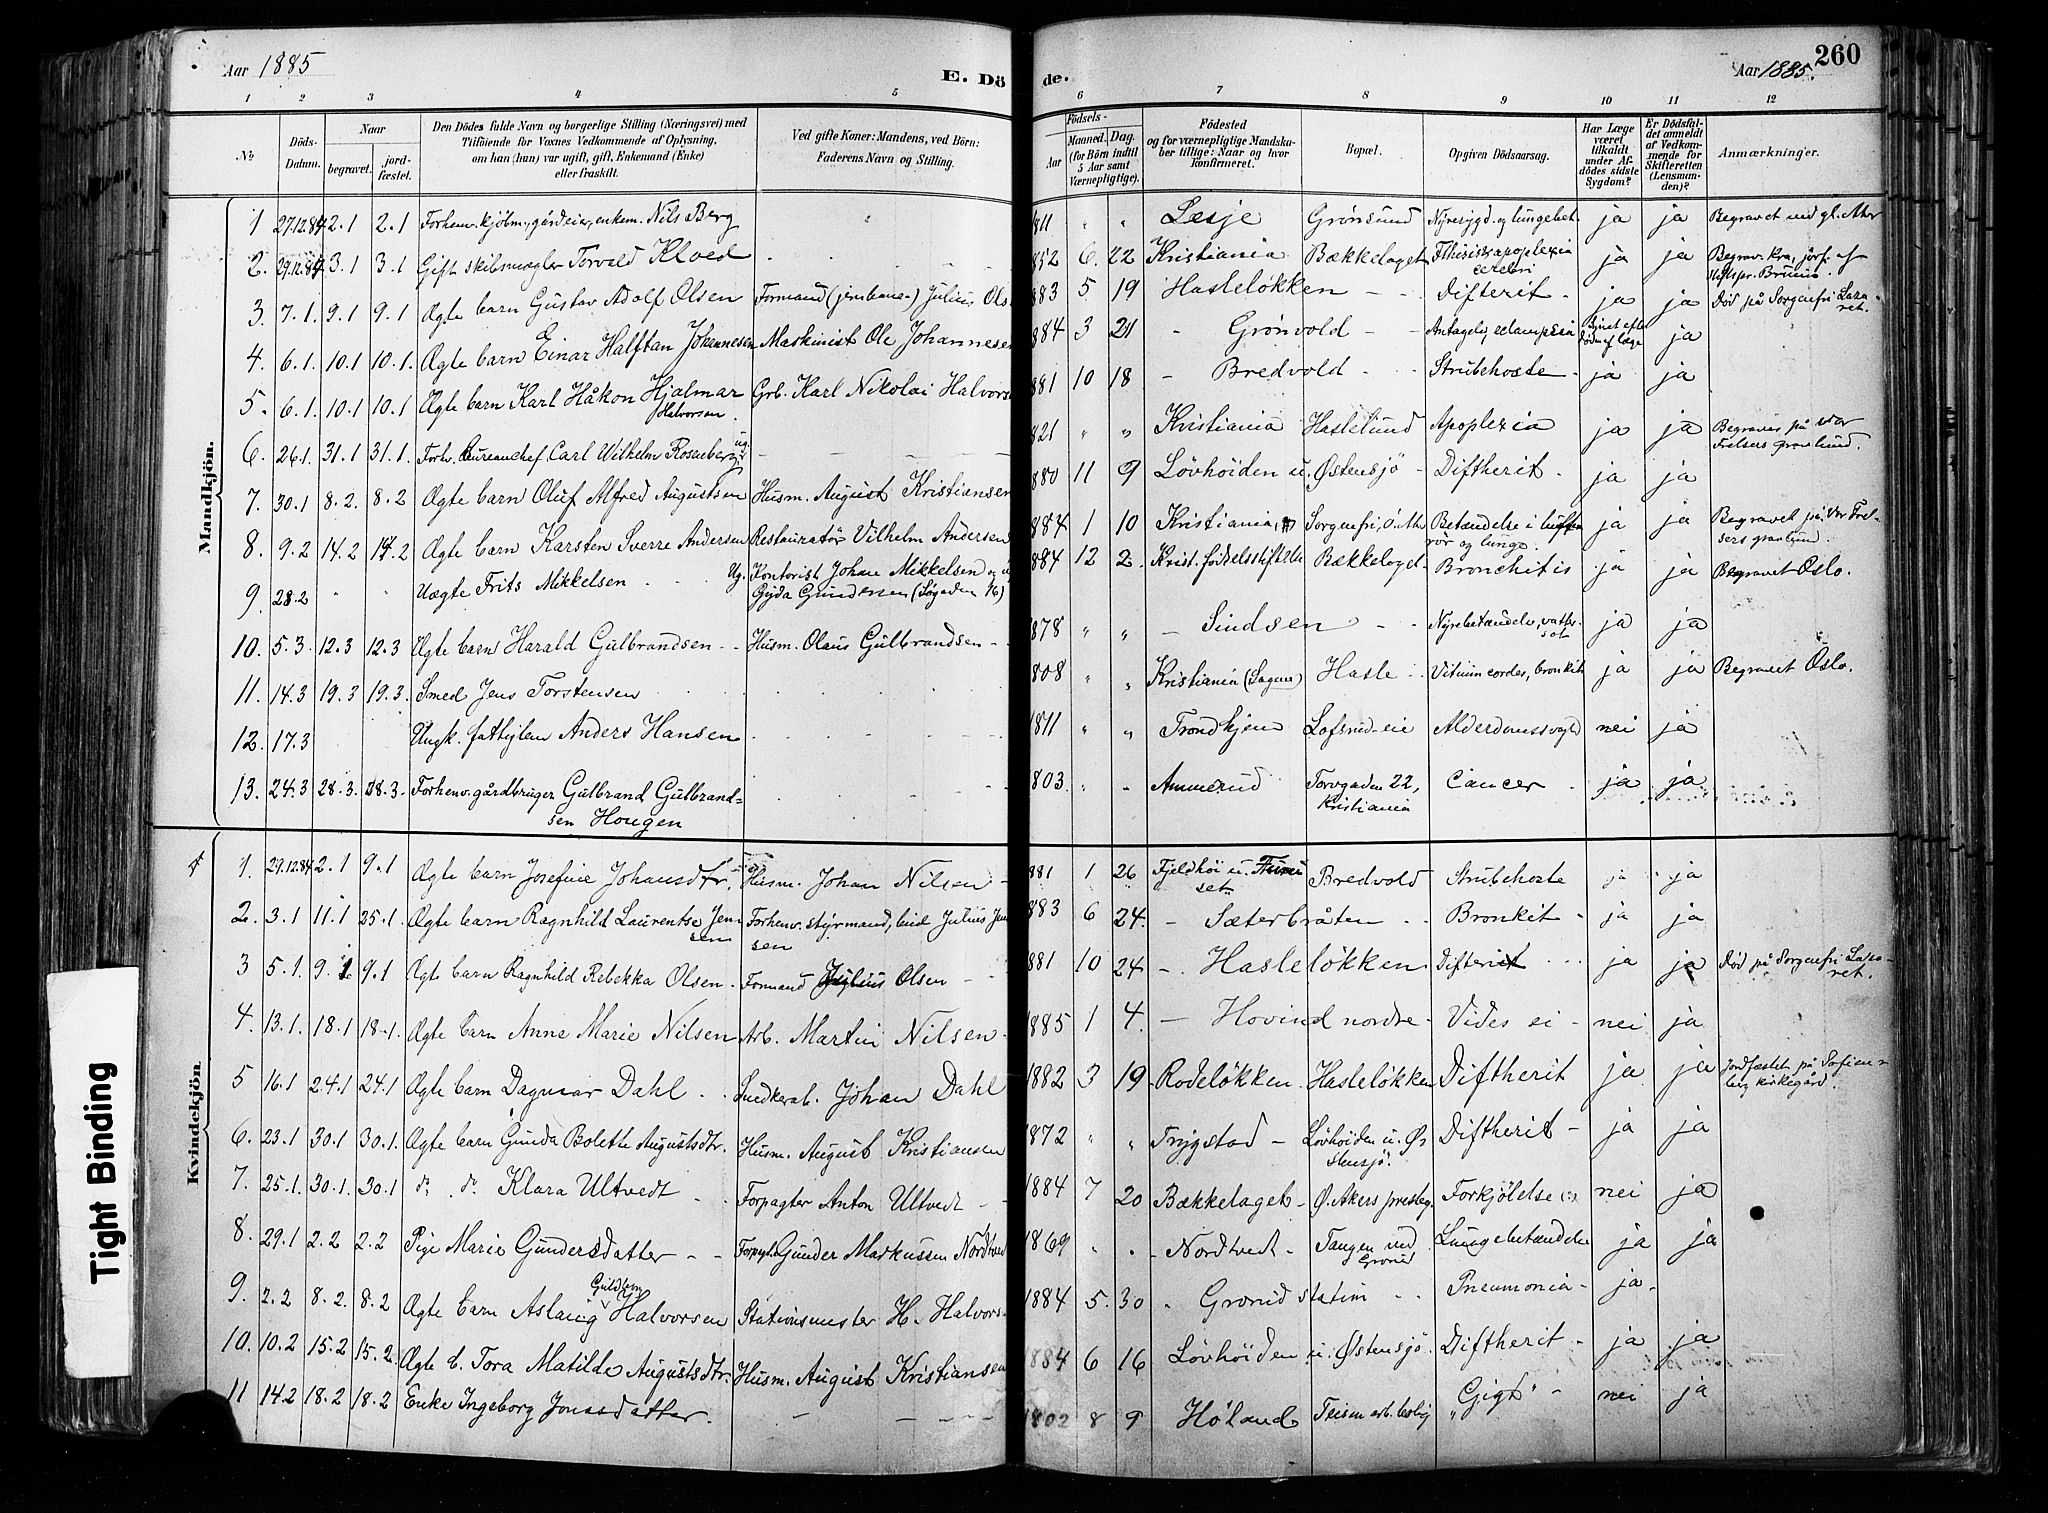 Aar 1885
E. Dö
de.
Aar 1885.
260
1 2 3 4 5
6 7 8 9 10 11 12
№
Döds-
Datum.
Naar
begravet.
jord-
fæstet.
Den Dödes fulde Navn og borgerlige Stilling (Næringsvei) med
Tilföiende for Voxnes Vedkommende af Oplysning,
om han (hun) var ugift, gift, Enkemand (Enke)
eller fraskilt.
Ved gifte Koner: Mandens, ved Börn:
Faderens Navn og Stilling.
Födsels-
Aar
Maaned. Dag.
(for Börn indtil
5 Aar samt
Værnepligtige).
Födested
og for værnepligtige Mandska-
ber tillige: Naar og hvor
konfirmeret.
Bopæl.
Opgiven Dödsaarsag.
Har Læge
været
tilkaldt
under Af-
dödes sidste
Sygdom?
Er Dödsfal-
det anmeldt
af Vedkom-
mende for
Skifteretten
(Lensman-
den)?
Anmærkninger.
Mandkjön.
1 27.12.84 2.1 2.1 Forhenv. kjöbm., gårdeier, enkem. Nils Berg " 1811 " " Lesje Grönsund Nyresygd. og lungebet. ja ja Begravet ved gl. Aker
2. 29.12.84 3.1 3.1 Gift skibsmægler Torvald Klved 852 6. 22 Kristiania Bækkelaget Fthisis, apoplexia ja ja Begrav. Kra, jörf. af
cerebri
3. 7.1. 9.1 9.1 Ægte barn Gustav Adolf Olsen Formand (jernbane-) Julius Ols 883 5 19 Hasleløkken - - Difterit - ja ja Död på Sorgenfri Laza-
ret.
4. 6.1. 10.1 10.1. Ægte barn Einar Halftan Johannesen Maskinist Ole Johannesen 884 3 21 " Grönvold - - Antagelig eclampsia ja
5. 6.1. 10.1 10.1 Ægte barn Karl Håkon Hjalmar Grb. Karl Nikolai Halvors 881 10 18 - Bredvold - - Strubehoste - ja ja
Halvorsen.
6. 26.1. 31.1 31.1. Forh. Bureauchef, Carl Wilhelm Rosenberg, ug. 821 " " Kristiania Haslelund Apoplexia ja ja Begraves på Vor
Frelsers gravlund.
7. 30.1 8.2. 8.2 Ægte barn Oluf Alfred Augustsen Husm. August Kristiansen 880 11 9 Lövhöiden u. Østensjö - Diftherit. ja ja
8. 9.2 14.2 14.2 Ægte barn Karsten Sverre Andersen Restauratör Vilhelm Andersen 884 1 10 Kristiania, Sorgenfri, Ö. Ak. Betændelse i luft- ja ja Begravet på Vor Frel-
rör og lunge. sers gravlund.
9. 28.2 " " Uægte Frits Mikkelsen Ug. Kontorist Johan Mikkelsen og ug 884 12 2. Krist. fødselsstiftelse Bækkelaget Bronchitis ja ja Begravet Oslo.
Gyda Gundersen (Søgaden 16)
10. 5.3. 12.3 12.3 Ægte barn Harald Gulbrandsen - - Husm. Olaus Gulbrandsen - - 1878 " " - Sindsen - - Nyrebetændelse, vatter- ja ja
sot
11. 14.3 19.3 19.3. Smed Jens Torstensen 808 " " Kristiania (Sagene) Hasle Vitium cordis, bronkit ja ja Begravet Oslo.
12. 17.3 Ungk. fattiglem Anders Hansen 1811 " " Trondhjem Lofsrud-eie Alderdomssvagh nei ja
13. 24.3 28.3. 28.3. Forhenv. gårdbruger Gulbrand Gulbrand- 803. " " Ammerud Torvgaden 22, Cancer ja ja
sen Hougen Kristiania
Kvindekjön
1. 29.12.84 2.1 9.1 Ægte barn Josefine Johansdtr. Husm. Johan Nilsen - 881 1 26 Fjeldhöi u. Furu Bredvold Strubehoste ja ja
set
2. 3.1 11.1 25.1. Ægte barn Ragnhild Laurentse Jen- Forhenv. styrmand, Julius Jen 883 6 24. - Sæterbråten - - Bronkit - ja ja
sen sen
3 5.1. 9.1 9.1 Ægte barn Ragnhild Rebekka Olsen. Formand Julius Olsen - - 881 10 24 - Hasleløkken Difterit ja ja Död på Sorgenfri Laza-
ret.
4. 13.1. 18.1 18.1. Ægte barn Anne Marie Nilsen Arb. Martin Nilsen 1885 1 4. - Hovind nordre - Vides ei - nei ja
5 16.1 24.1 24.1. Ægte barn Dagmar Dahl Snedkerab. Johan Dahl 1882 3 19 Rodeløkken Hasleløkken Diftherit ja ja Jordfæstet på Sofien-
berg kirkegård.
6. 23.1 30.1 30.1. Ægte barn Gunda Bolette Augustsdtr. Husm. August Kristiansen 1872 " " Trygstad - Lövhöiden u. Ø- Diftherit - ja ja
stensjö.
7. 25.1. 30.1. 30.1 do. do. Klara Ultvedt Forpagter Anton Ultvedt - 1884 7 20 Bækkelaget - Ø. Akers prestegj. Forkjölelse (?) nei ja
8. 29.1 2.2 2.2 Pige Marie Gundersdatter - - Forpgt. Gunder Markussen Nordtved 1869 " " Nordtvedt - Tangen ved Lungebetændelse ja ja
Grorud
9. 2.2 8.2. 8.2 Ægte barn Aslaug Guldborg Halvorsen Stationsmester H. Halvors- 1884 5. 30 " Grorud station - - Pneumonia - ja -
10. 10.2 15.2 15.2. Ægte b. Tora Matilde Augustsdtr. Husm. August Kristiansen 1884 6 16 Lövhöiden u. Østensjö Diftherit - ja ja
11 14.2 18.2 18.2 Enke Ingeborg Jonasdatter. - - - 1802 8 9 Höland "Gigt" - nei ja
Tight Binding